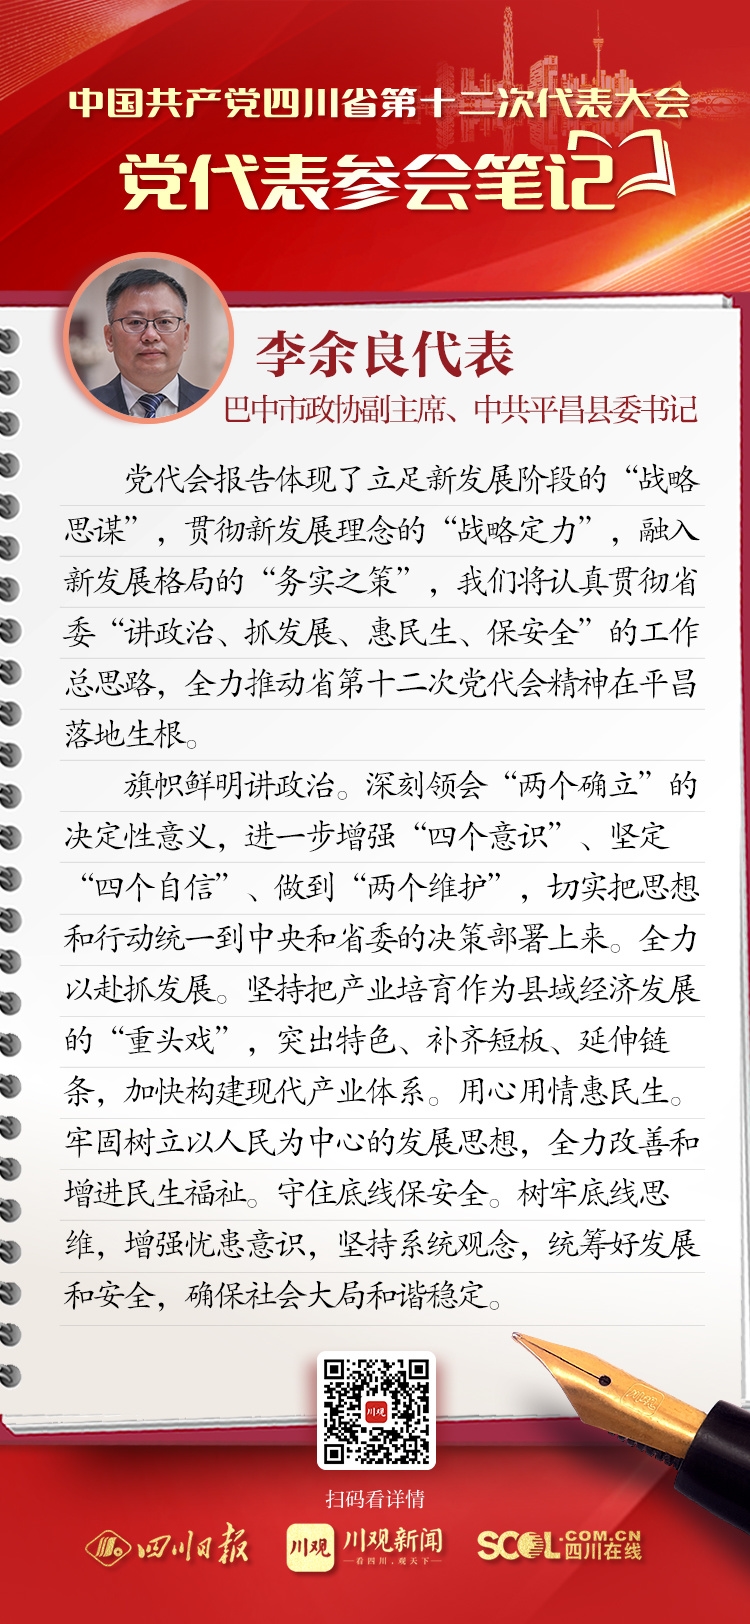 中国共产党四川省第十二次代表大会
党代表参会笔记
李余良代表
巴中市政协副主席、中共平昌县委书记
党代会报告体现了立足新发展阶段的“战略
思谋”，贯彻新发展理念的“战略定力”，融入
新发展格局的“务实之策”，我们将认真贯彻省
委“讲政治、抓发展、惠民生、保安全”的工作
总思路，全力推动省第十二次党代会精神在平昌
落地生根。
旗帜鲜明讲政治。深刻领会“两个确立”的
决定性意义，进一步增强“四个意识”、坚定
“四个自信”、做到“两个维护”，切实把思想
和行动统一到中央和省委的决策部署上来。全力
以赴抓发展。坚持把产业培育作为县域经济发展
的“重头戏”，突出特色、补齐短板、延伸链
条，加快构建现代产业体系。用心用情惠民生。
牢固树立以人民为中心的发展思想，全力改善和
增进民生福祉。守住底线保安全。树牢底线思
维，增强忧患意识，坚持系统观念，统筹好发展
和安全，确保社会大局和谐稳定。
川观
扫码看详情
四川日报
川观 川观新闻
看四川，观天下
SCOL.COM.CN
四川在线